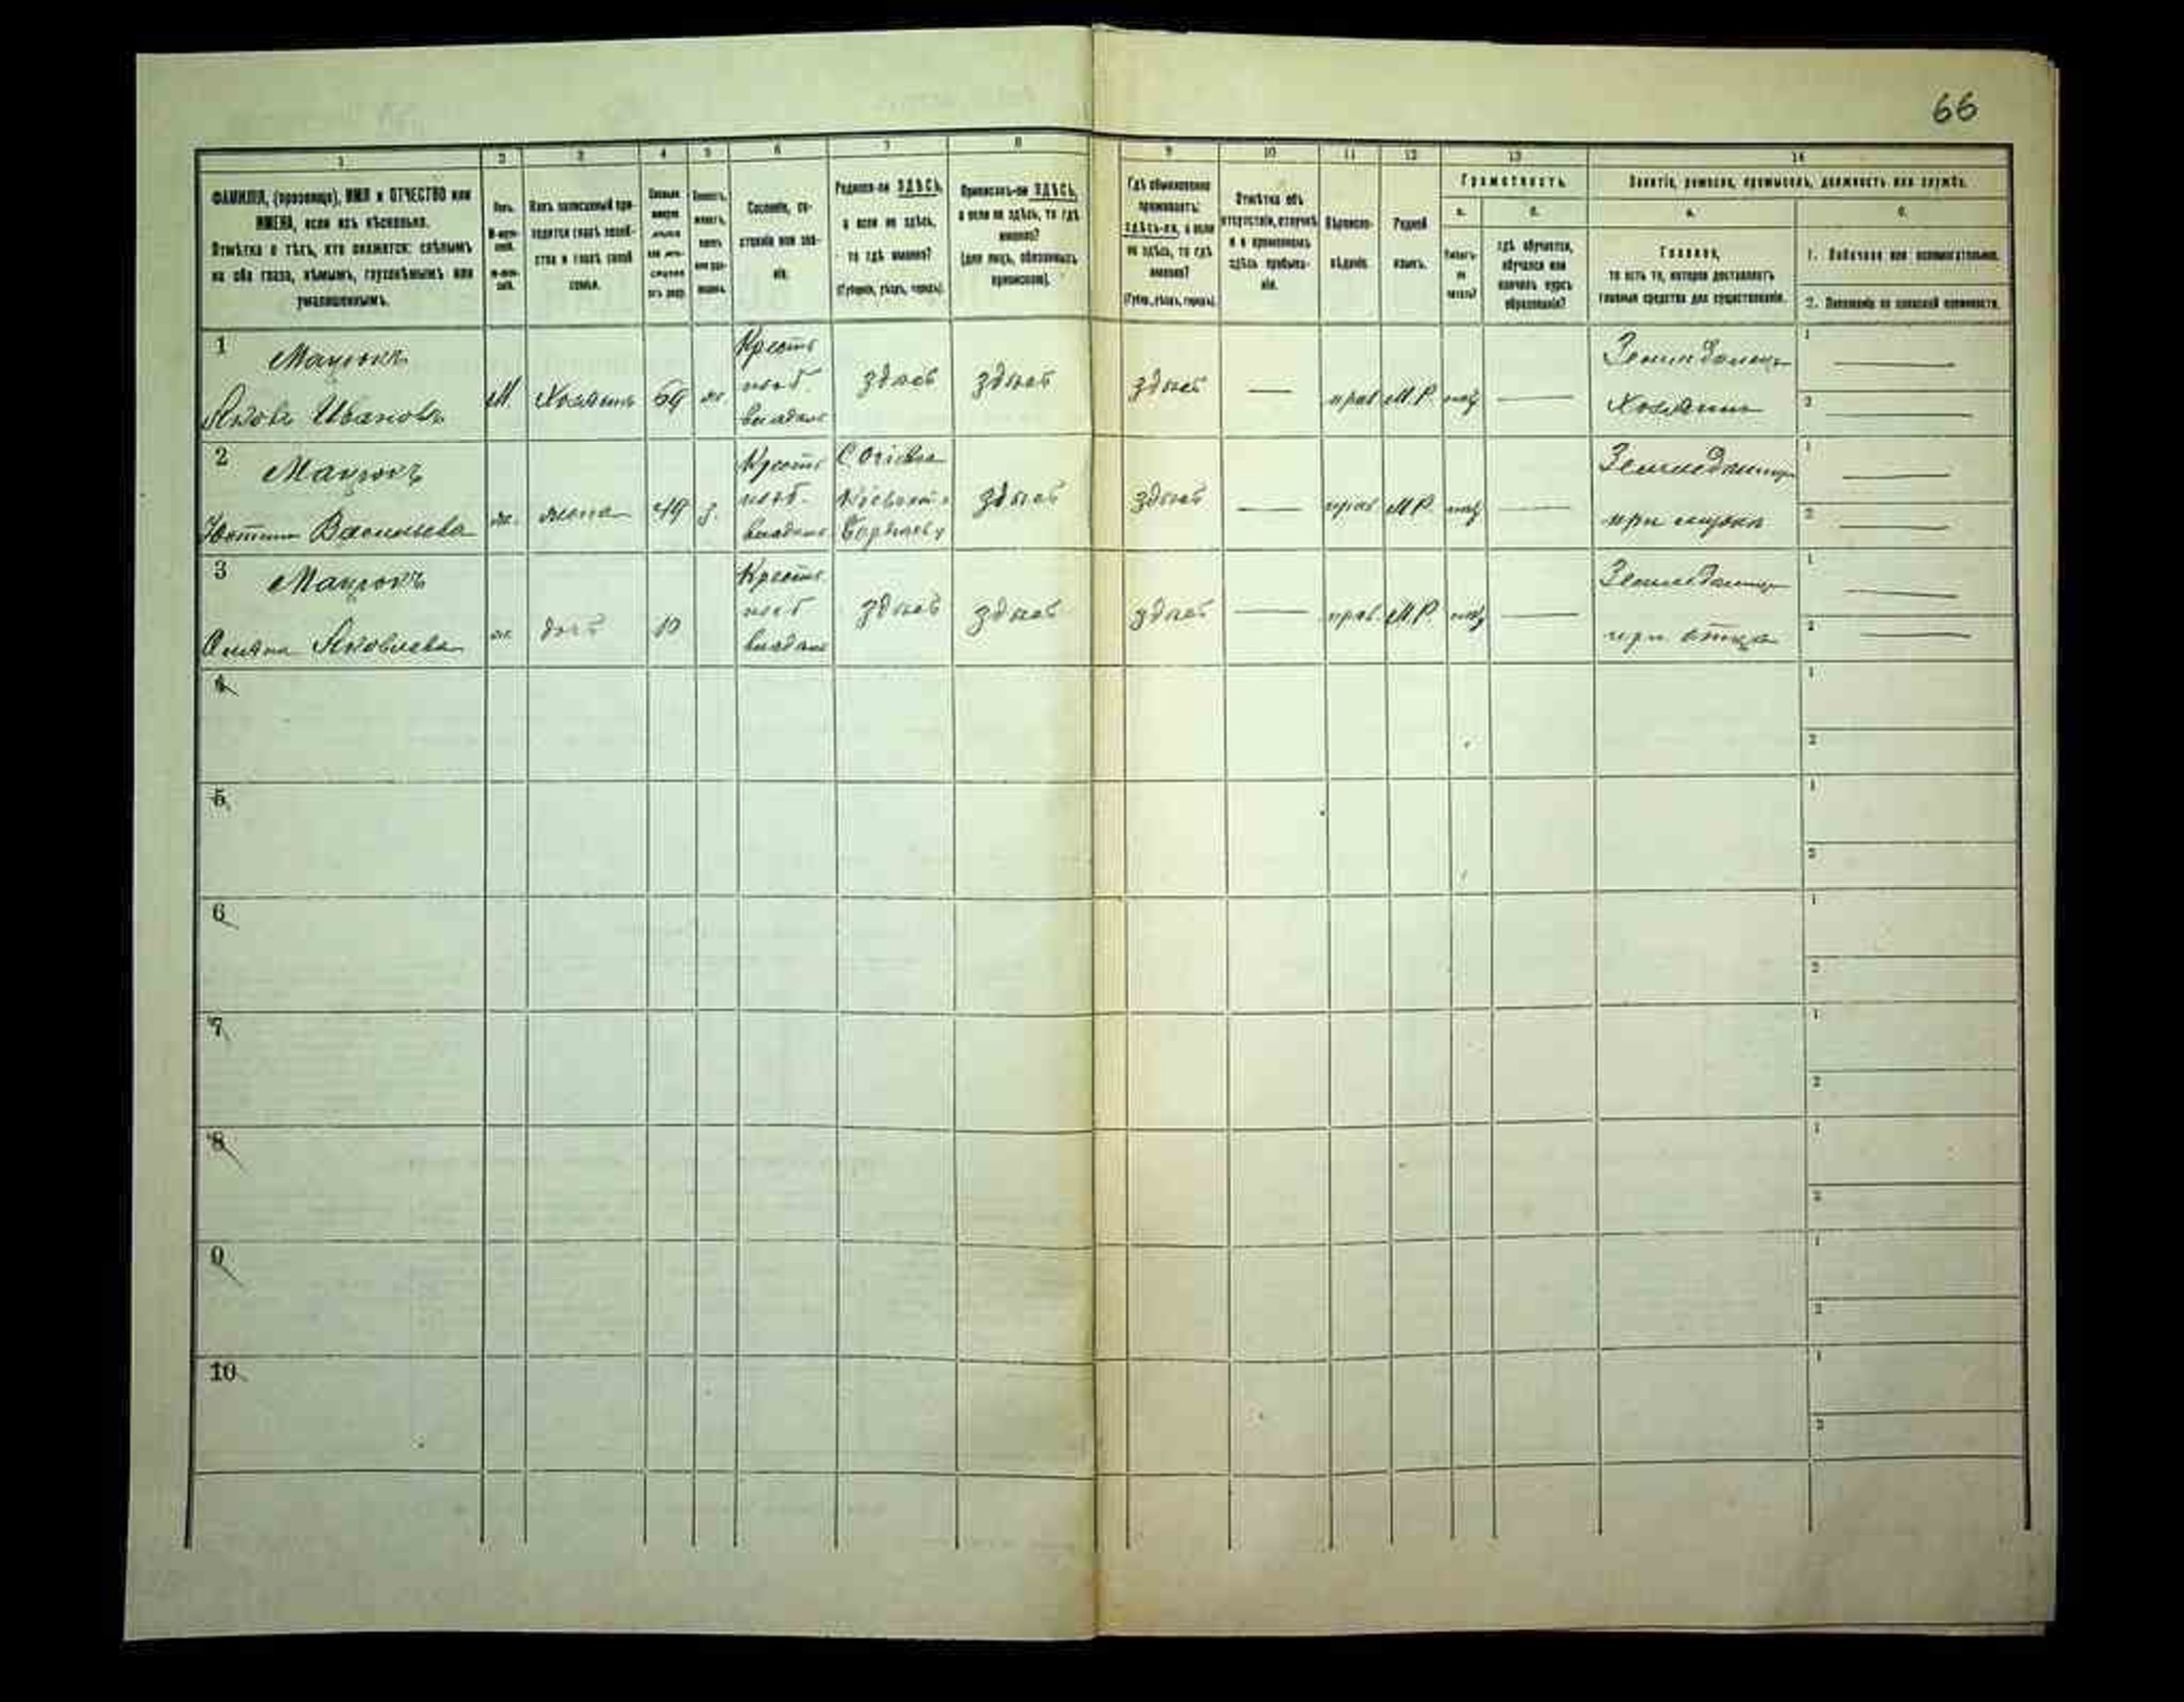 66
1 2 3 4 5 6 7 8 9 10 11 12 13 14
ФАМИЛІЯ, (прозвище), ИМЯ и ОТЧЕСТВО или
ИМЕНА, если ихъ нѣсколько.
Отмѣтка о тѣхъ, кто окажется: слѣпымъ
на оба глаза, нѣмымъ, глухонѣмымъ или
умалишеннымъ.
Полъ.
Какъ записанный при-
ходится главѣ хозяй-
ства и главѣ своей
семьи.
Сословіе, со-
стояніе или зва-
ніе.
Родился-ли ЗДѢСЬ,
а если не здѣсь,
то гдѣ именно?
(Губернія, уѣздъ, городъ).
Приписанъ-ли ЗДѢСЬ,
а если не здѣсь, то гдѣ
именно?
(для лицъ, обязанныхъ
припискою).
Гдѣ обыкновенно
проживаетъ:
здѣсь-ли, а если
не здѣсь, то гдѣ
именно?
(Губер., уѣздъ, городъ).
Отмѣтка объ
отсутствіи, отлучкѣ
и о временномъ
здѣсь пребыва-
ніи.
Вѣроиспо-
вѣданіе.
Родной
языкъ.
Грамотность.
а. б.
Умѣетъ-
ли
читать?
гдѣ обучается,
обучался или
кончилъ курсъ
образованія?
Занятіе, ремесло, промыселъ, должность или служба.
а. б.
Главное,
то есть то, которое доставляетъ
главныя средства для существованія.
1. Побочное или вспомогательное.
2. Положеніе по воинской повинности.
1 Мацюкъ
Яковъ Ивановъ
М. Хозяинъ 69 ж.
Крестъ
соб.
владѣл
здѣсь здѣсь здѣсь — прав М.Р. нѣт —
Земледѣлецъ
Хозяинъ
1 —
2 —
2 Мацюкъ
Устина Васильева
ж. жена 49 з.
Крестъ
соб.
владѣл
здѣсь здѣсь — прав М.Р. нѣт —
Земледѣлица
при мужѣ
1 —
2 —
3 Мацюкъ
Яковлева
ж. дочь 10
Крестъ.
соб
владѣл
здѣсь здѣсь здѣсь — прав. М.Р. нѣт —
Земледѣлица
при отцѣ
1 —
2 —
4
1
2
5
1
2
6
1
2
7
1
2
8
1
2
9
1
2
10
1
2